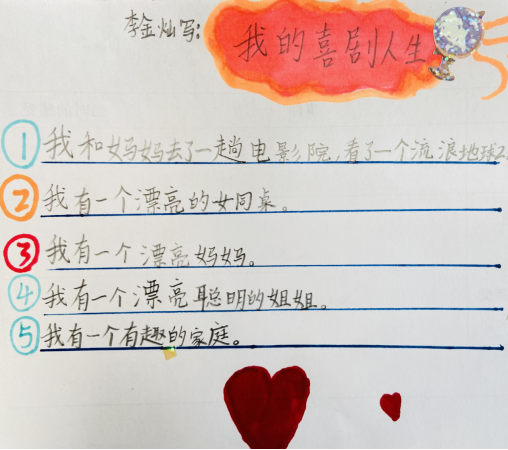 李金灿写:
我的喜剧人生
① 我和妈妈去了一趟电影院,看了一个流浪地球2。
② 我有一个漂亮的女同桌。
③ 我有一个漂亮妈妈。
④ 我有一个漂亮聪明的姐姐。
⑤ 我有一个有趣的家庭。